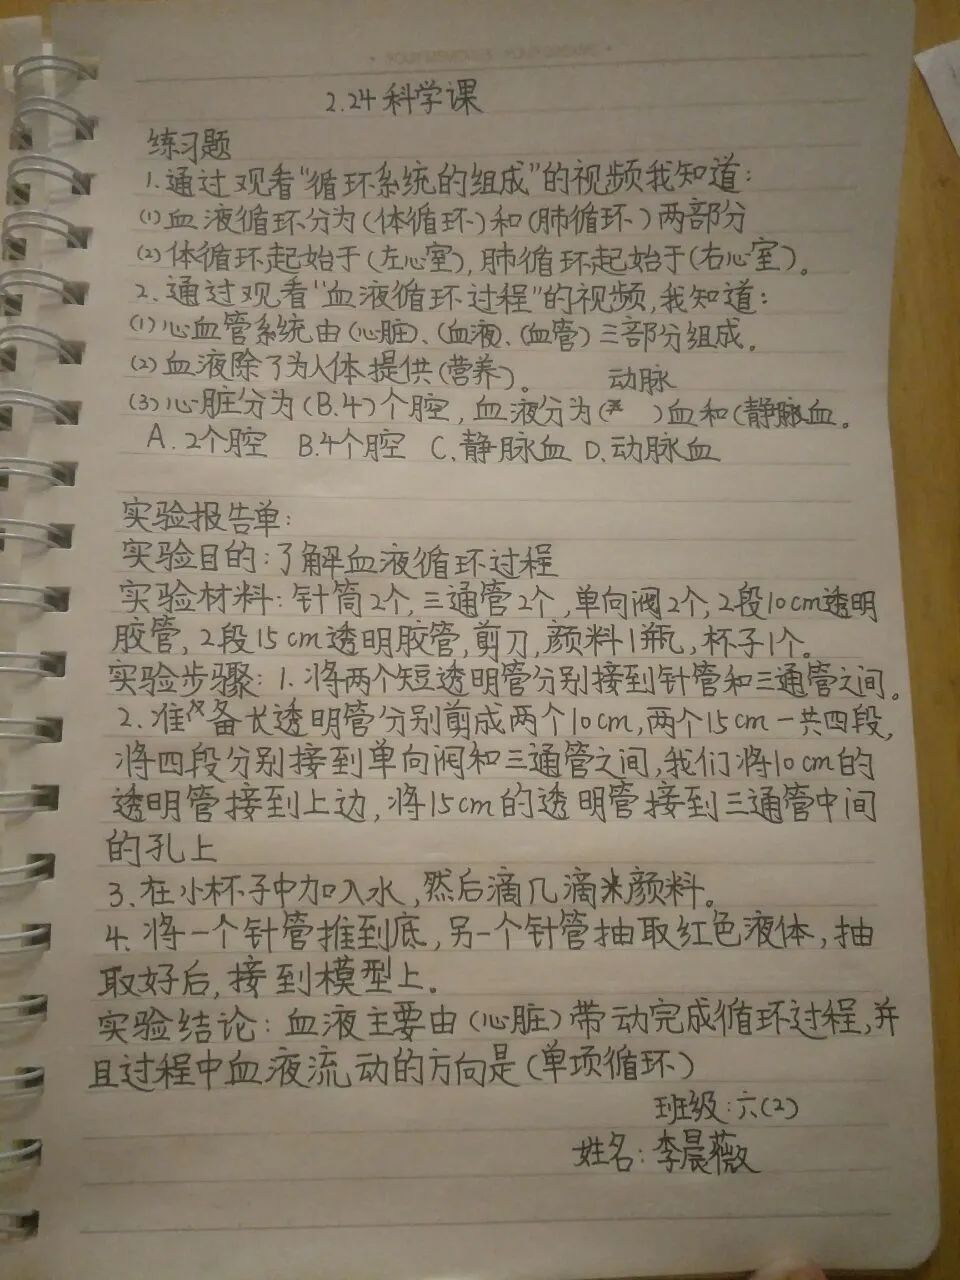 2.24科学课
练习题
1.通过观看“循环系统的组成”的视频我知道:
(1)血液循环分为(体循环)和(肺循环)两部分
(2)体循环起始于(左心室),肺循环起始于(右心室)。
2.通过观看“血液循环过程”的视频,我知道:
(1)心血管系统由(心脏)、(血液)、(血管)三部分组成。
(2)血液除了为人体提供(营养)。
动脉
(3)心脏分为(B.4)个腔,血液分为( )血和(静脉血。
A.2个腔 B.4个腔 C.静脉血 D.动脉血
实验报告单:
实验目的:了解血液循环过程
实验材料:针筒2个,三通管2个,单向阀2个,2段10cm透明
胶管,2段15cm透明胶管,剪刀,颜料1瓶,杯子1个。
实验步骤:1.将两个短透明管分别接到针管和三通管之间。
2.准备长透明管分别剪成两个10cm,两个15cm一共四段,
将四段分别接到单向阀和三通管之间,我们将10cm的
透明管接到上边,将15cm的透明管接到三通管中间
的孔上
3.在小杯子中加入水,然后滴几滴颜料。
4.将一个针管推到底,另一个针管抽取红色液体,抽
取好后,接到模型上。
实验结论:血液主要由(心脏)带动完成循环过程,并
且过程中血液流动的方向是(单项循环)
班级:六(2)
姓名:李晨薇